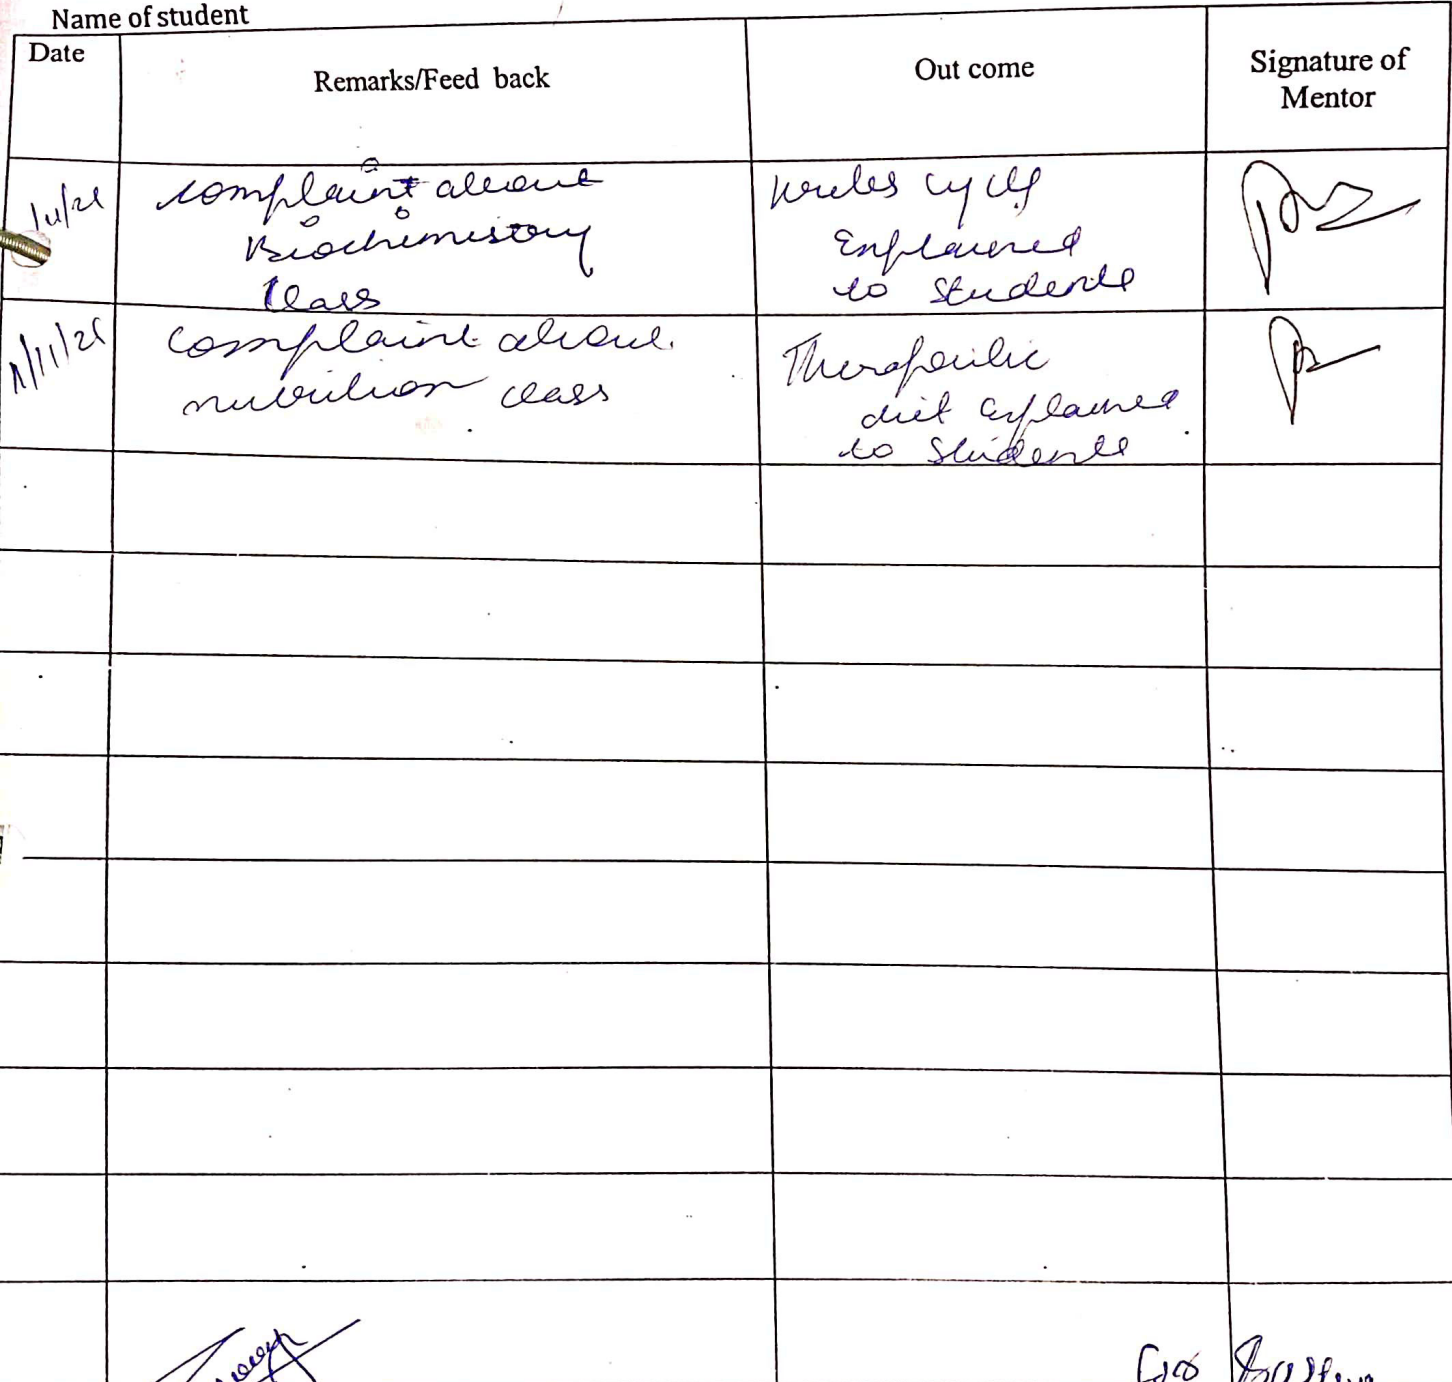 Name of student
Date
Remarks/Feed back
Out come
Signature of
Mentor
complaint about
Biochemistory
Class
cycle
Explained
to students
complaint about
nutrition class
Therapeutic
diet explained
to students